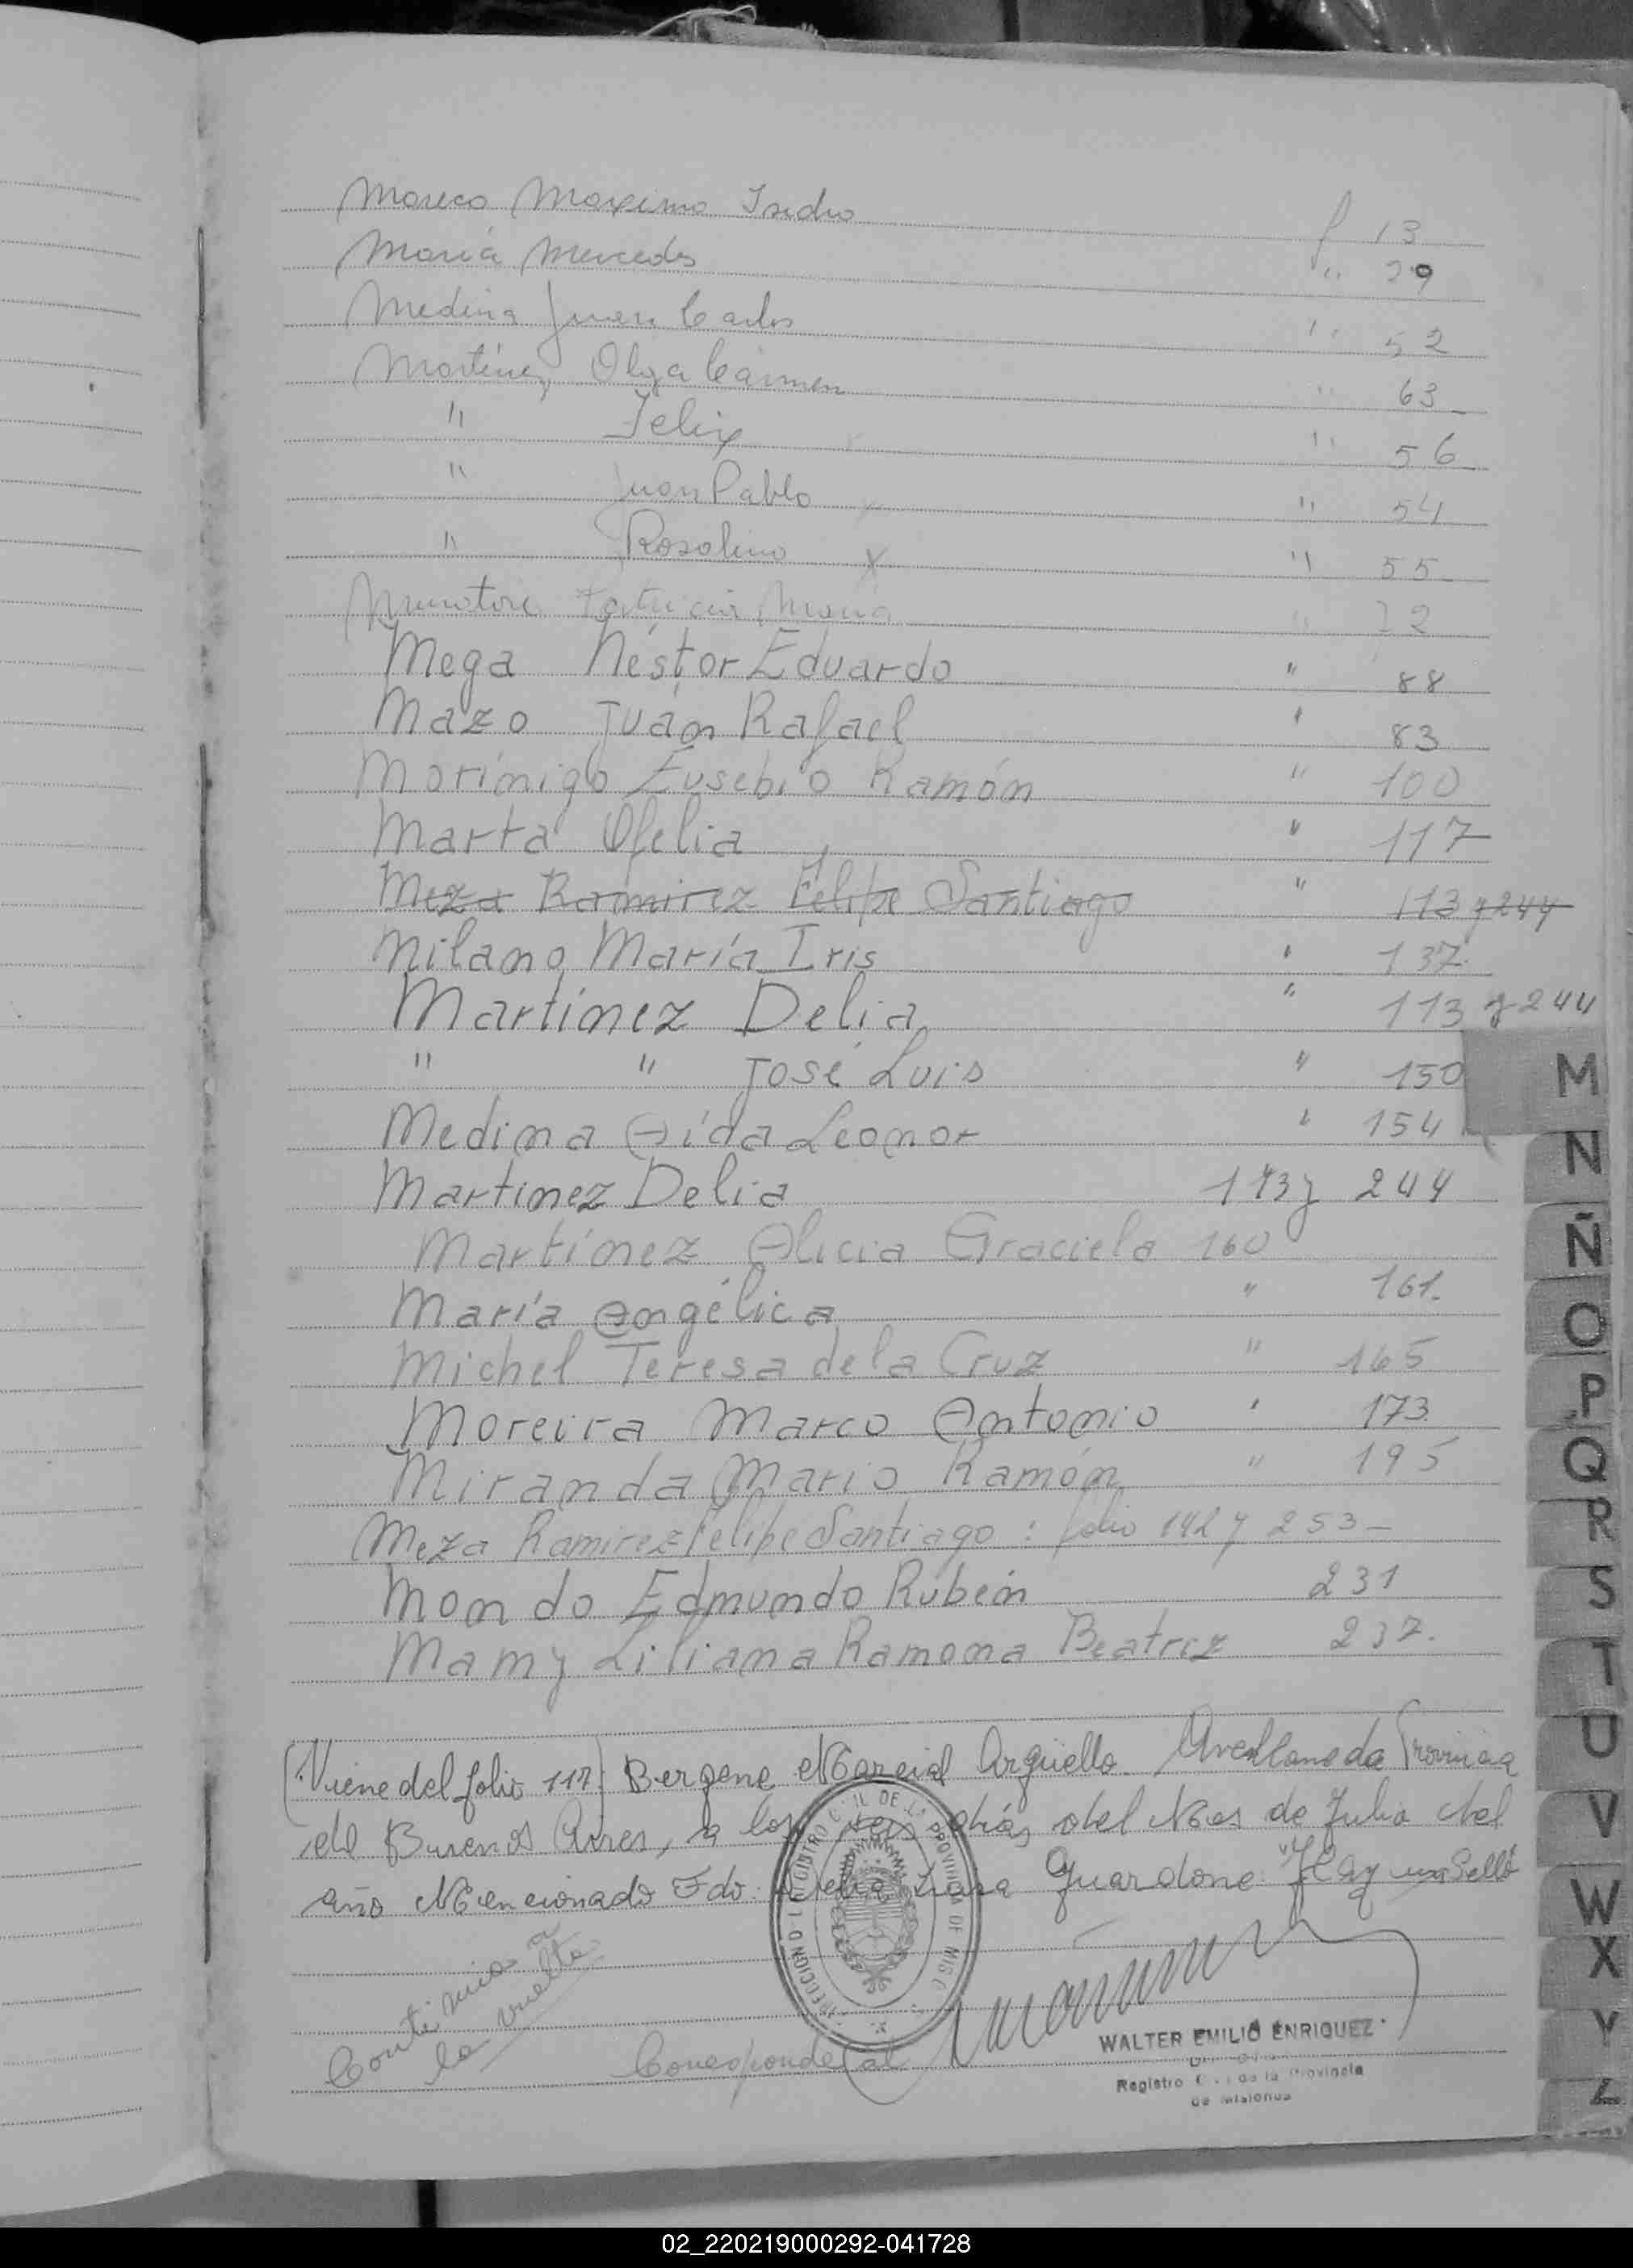 Mareco Maximo Isidro f 13
María Mercedes " 29
Medina Juan Carlos " 52
Martinez, Olga Carmen " 63
" Felix " 56
" Juan Pablo " 54
" Rosalino X " 55
Patricia Maria " 72
Mega Néstor Eduardo " 88
Mazo Juan Rafael " 83
Morínigo Eusebio Ramón " 100
Marta Ofelia " 117
Meza Ramirez Felipe Santiago " 113 y 244
Milano María Iris " 137
Martínez Delia " 113 y 244
" " José Luis " 150
Medina Aída Leonor " 154
Martinez Delia 113 y 244
Martínez Alicia Graciela 160
María Angélica " 161.
Michel Teresa de la Cruz " 165
Moreira Marco Antonio " 173
Miranda Mario Ramón " 195
Meza Ramirez Felipe Santiago : folio 142 y 253-
Mondo Edmundo Rubén 231
Mamy Liliana Ramona Beatriz 237.
(Viene del folio 117) Marcial Argüello. Avellaneda Provincia
de Buenos Aires, a los seis días del Mes de Julio del
año Mencionado Fdo. Guardone. Hay un Sello
Continúa a
la vuelta
Corresponde al
WALTER EMILIO ENRIQUEZ
Registro de la Provincia
de Misiones
M
N
Ñ
O
P
Q
R
S
T
U
V
W
X
Y
Z
02_220219000292-041728